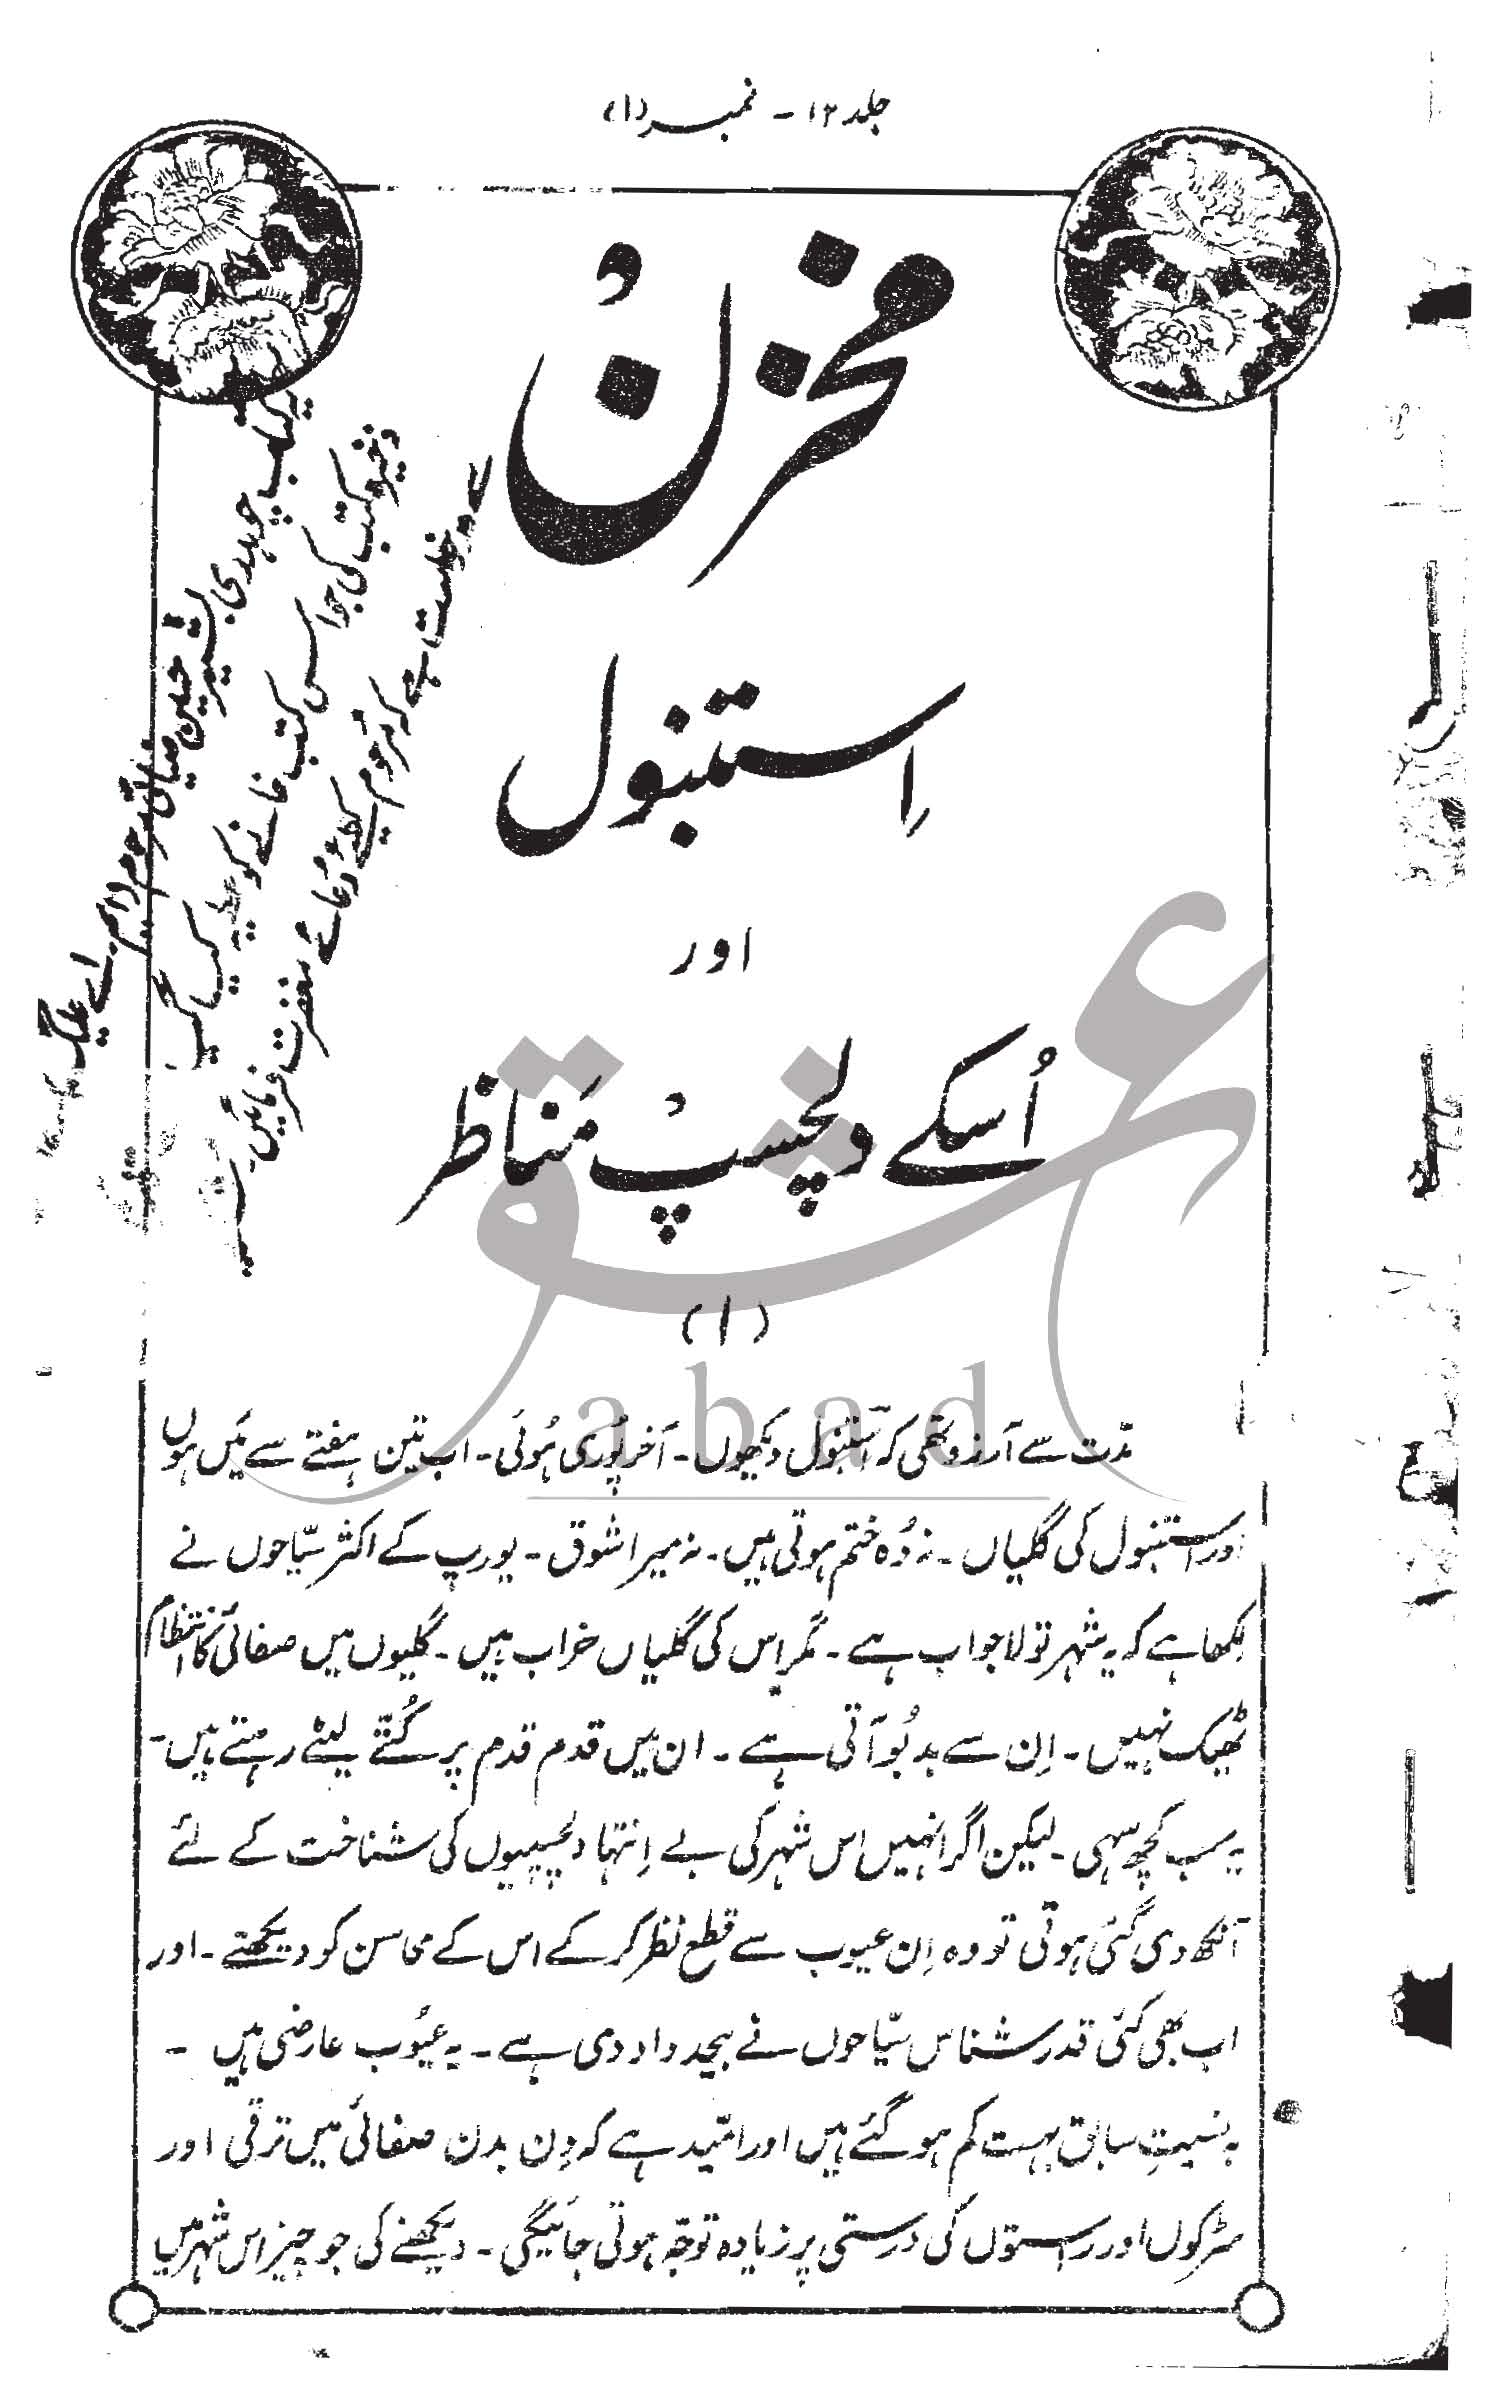 جلد ۱۲ - نمبر (۱)
مخزن
اِستنبول
اور
اُسکے دلچسپ مناظر
(۱)
مدّت سے آرزو تھی کہ استنبول دیکھوں - آخر پُوری ہُوئی - اب تین ہفتے سے مَیں ہوں
اور استنبول کی گلیاں - نہ وُہ ختم ہوتی ہیں - نہ میرا شوق - یورپ کے اکثر سیّاحوں نے
لکھا ہے کہ یہ شہر تو لاجواب ہے - مگر اِس کی گلیاں خراب ہیں - گلیوں میں صفائی کا انتظام
ٹھیک نہیں - اِن سے بدبُو آتی ہے - ان میں قدم قدم پر کُتّے لیٹے رہتے ہیں -
یہ سب کچھ سہی - لیکن اگر اُنہیں اس شہر کی بے اِنتہا دلچسپیوں کی شناخت کے لئے
آنکھ دی گئی ہوتی تو وہ اِن عیوب سے قطع نظر کر کے اس کے محاسن کو دیکھتے - اور
اب بھی کئی قدر شناس سیّاحوں نے بیحد داد دی ہے - یہ عیُوب عارضی ہیں -
بہ نسبتِ سابق بہت کم ہو گئے ہیں اور امّید ہے کہ دِن بدن صفائی میں ترقی اور
سڑکوں اور راستوں کی درستی پر زیادہ توجّہ ہوتی جائیگی - دیکھنے کی جو چیز اس شہر میں
یہ کتاب چوہدری بشیر حسین ضیائی مرحوم (ایم اے علیگ)
ذخیرہ کتب کی جو اس کتب خانے کو عطیہ کیا گیا
درخواست ہے کہ مرحوم کیلئے دُعائے مغفرت فرمائیں
abad